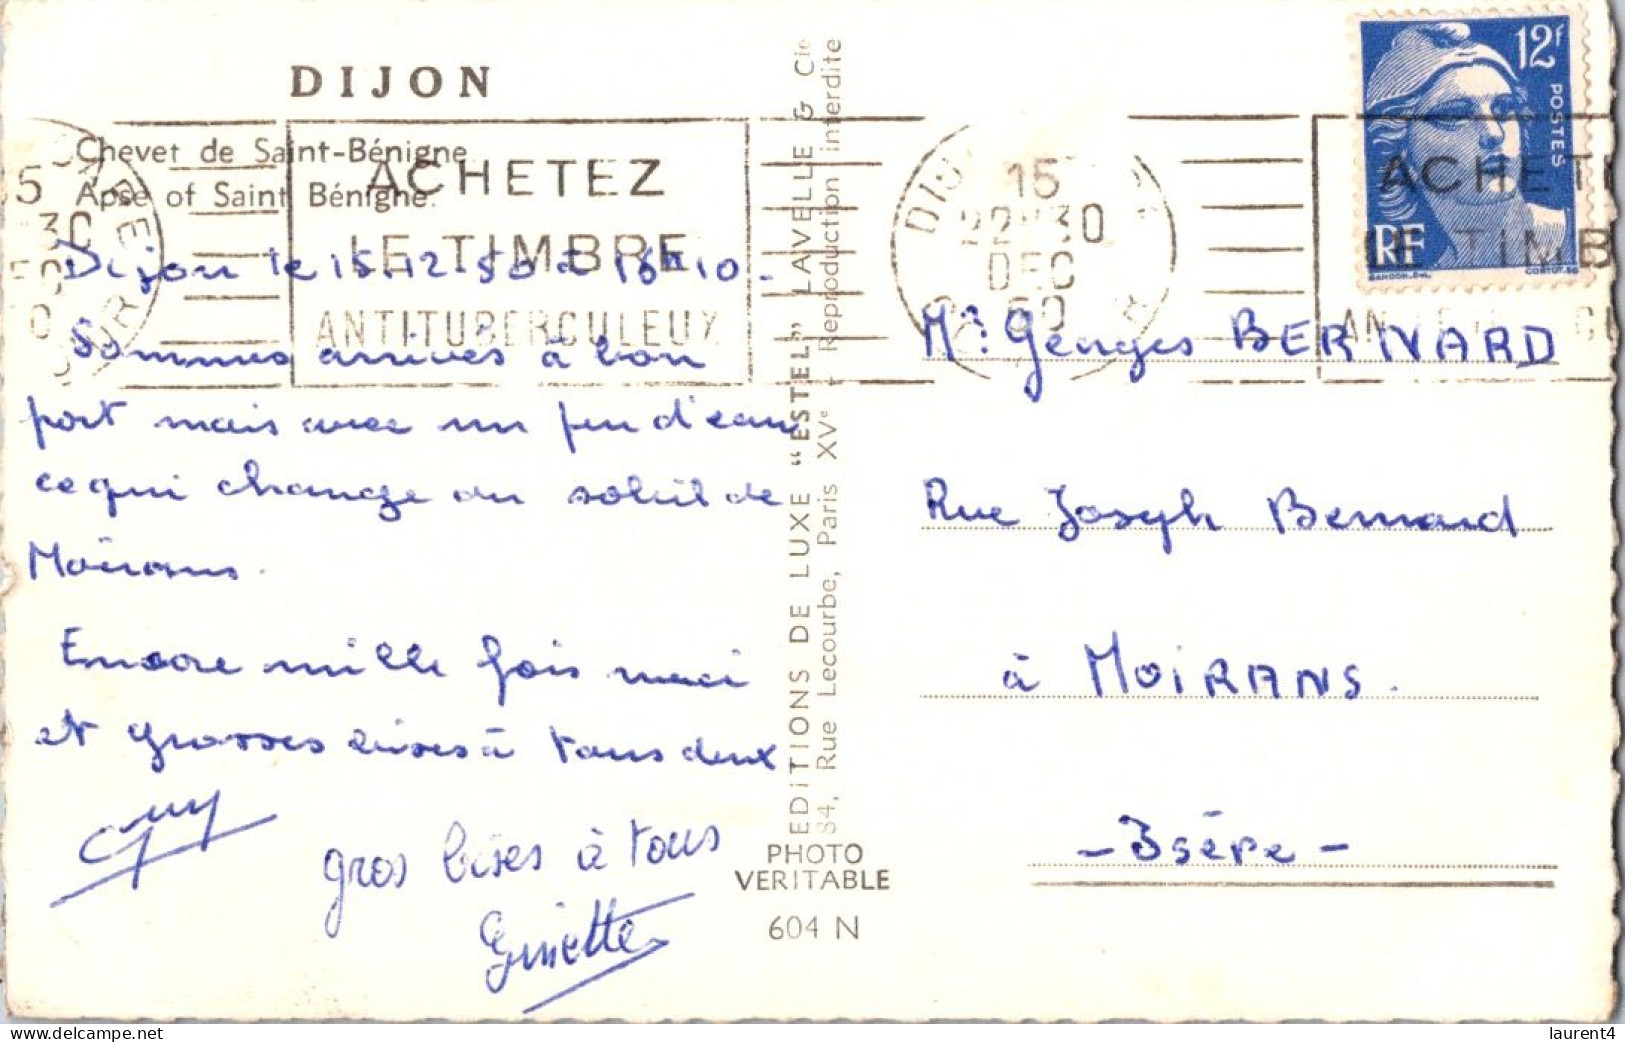 DIJON
Chevet de Saint-Bénigne
Apse of Saint Bénigne.
ACHETEZ
LE TIMBRE
ANTITUBERCULEUX
Dijon le 15.12 50 à 18h10 -
Sommes arrivés à bon
port mais avec un peu d'eau
ce qui change du soleil de
Moirans.
Encore mille fois merci
et grosses bises à tous deux
Guy
gros bises à tous
Ginette
EDITIONS DE LUXE "ESTEL" LAVELLE & Cie
84, Rue Lecourbe, Paris XVe - Reproduction interdite
PHOTO
VERITABLE
604 N
15
22H30
DEC
50
12f
POSTES
RF
ACHET
LE TIMB
Mr Georges BERNARD
Rue Joseph Bernard
à MOIRANS.
- Isère -
laurent4